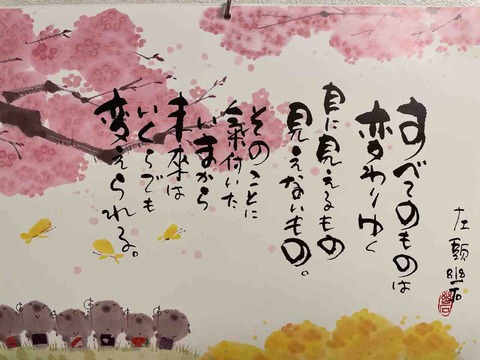 すべてのものは
変わりゆく
目に見えるもの
見えないもの。
そのことに
氣付いた
いまから
未来は
いくらでも
変えられる。